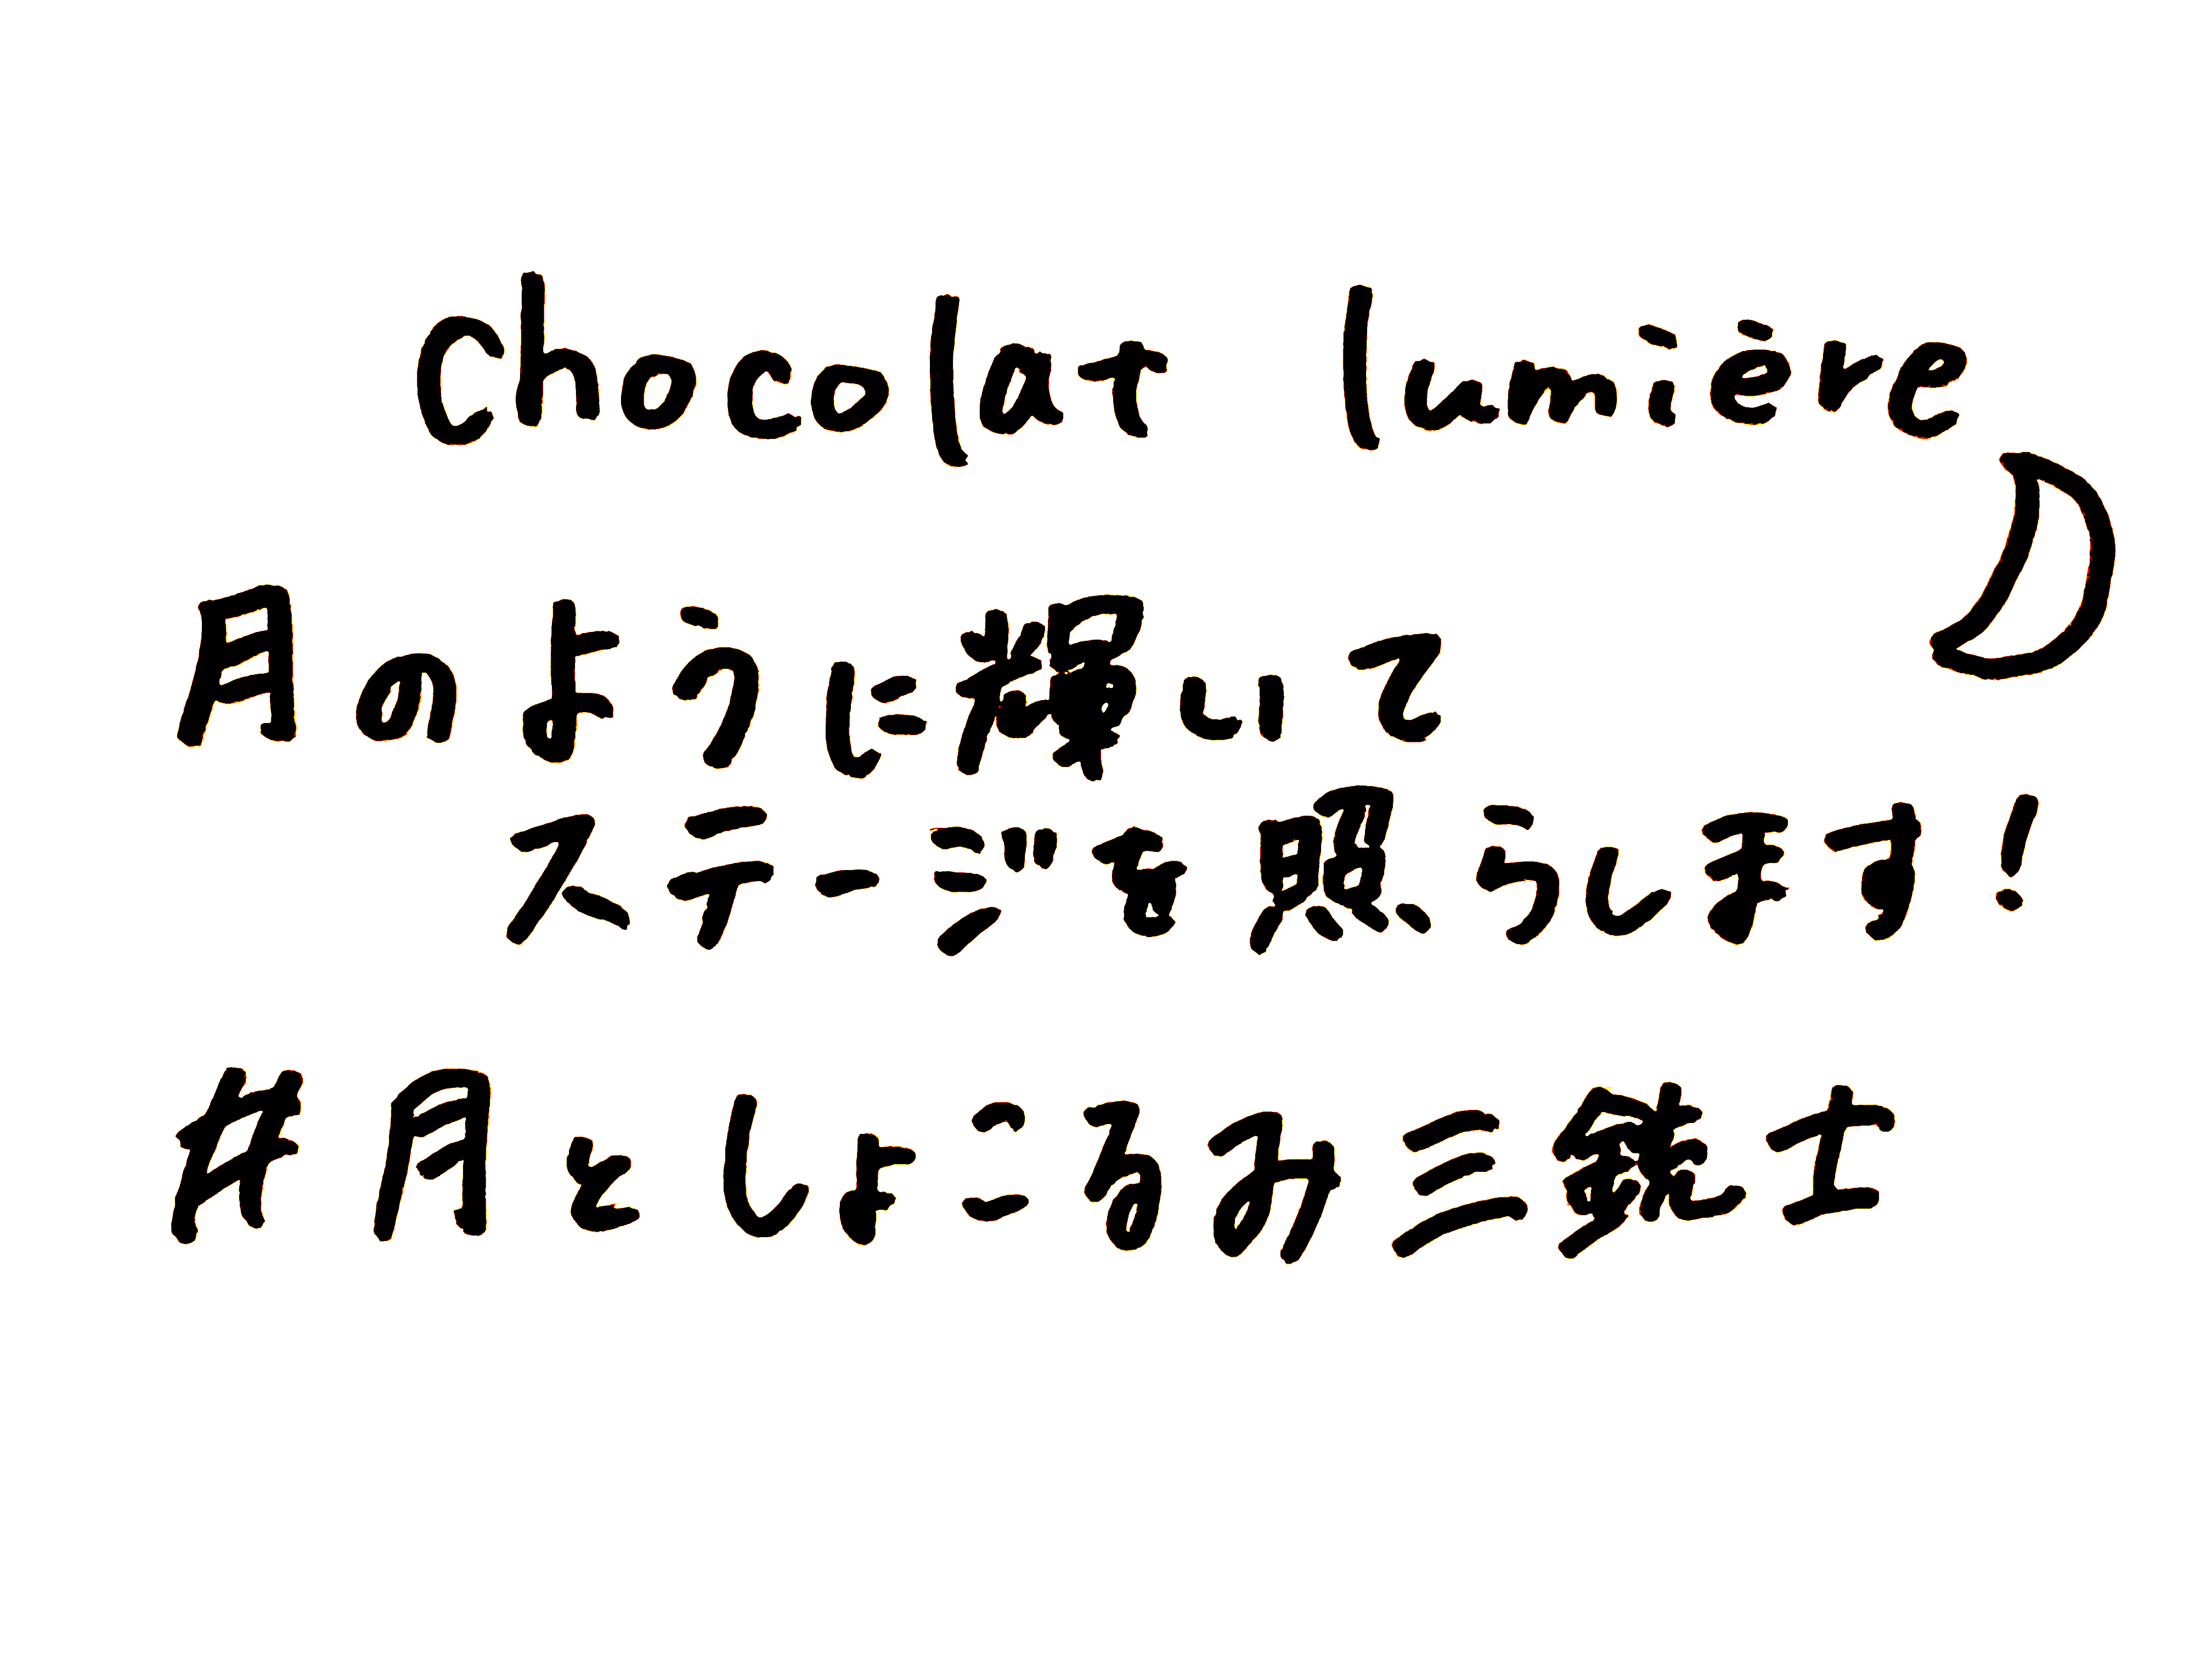 chocolat lumière
月のように輝いて
ステージを照らします!
#月としょころみ三銃士